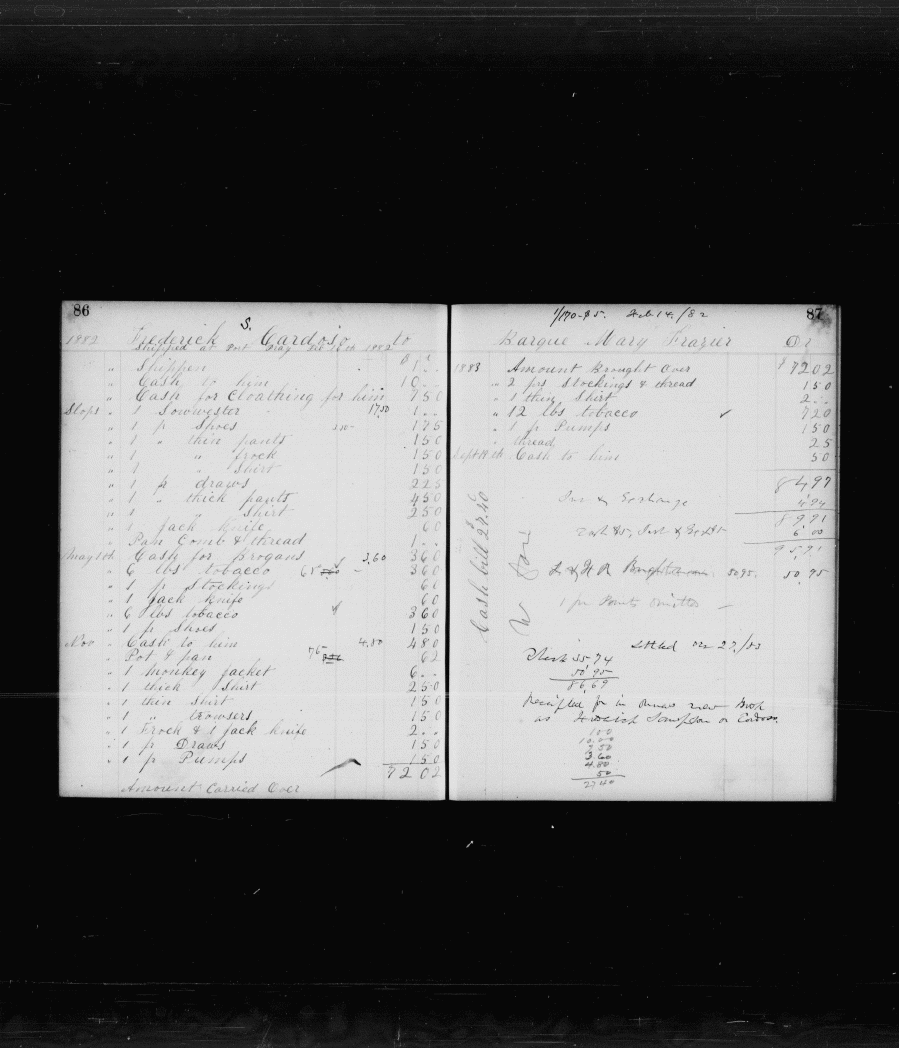 86
1882 Frederick S. Cardoso to
Shipped at Port Feb 14th 1882
" Shippen 1 " "
" Cash to him 10 " "
" Cash for Cloathing for him 750
1750
Slops " 1 Sowwester 1 " "
" 1 p Shoes 175
" 1 " thin pants 150
" 1 " frock 150
" 1 " Shirt 150
" 1 p draws 225
" 1 " thick pants 450
" 1 " Shirt 250
" 1 jack knife 60
" Pan Comb & thread 1 " "
May 1th " Cash for Brogans 3.60 360
" 6 lbs tobacco 360
" 1 p Stockings 60
" 1 Jack Knife 60
" 6 lbs tobacco 360
" 1 p Shoes 150
Nov " Cash to him 4.80 480
" Pot & pan 62
" 1 monkey jacket 6 " "
" 1 thick Shirt 250
" 1 thin Shirt 150
" 1 " trowsers 150
" 1 Frock & 1 jack knife 2 " "
" 1 p Draws 150
" 1 p Pumps 150
7202
Amount Carried Over
87
1/170-$5. Feb 14/82
Barque Mary Frazier Dr
1883 Amount Brought Over $7202
" 2 prs Stockings & thread 150
" 1 thin Shirt 2 " "
" 12 lbs tobacco 720
" 1 p Pumps 150
" thread 25
Sept 19th Cash to him 50
8497
Int & Exchange 4 94
8991
6 00
9591
5095. 50.95
1 pr Pants omitted
Cash bill 27.40
Settled 27/83
35.74
50.95
86.69
Receipted for in new Book
as
1 00
10.00
7 50
3.60
4.80
50
27 40